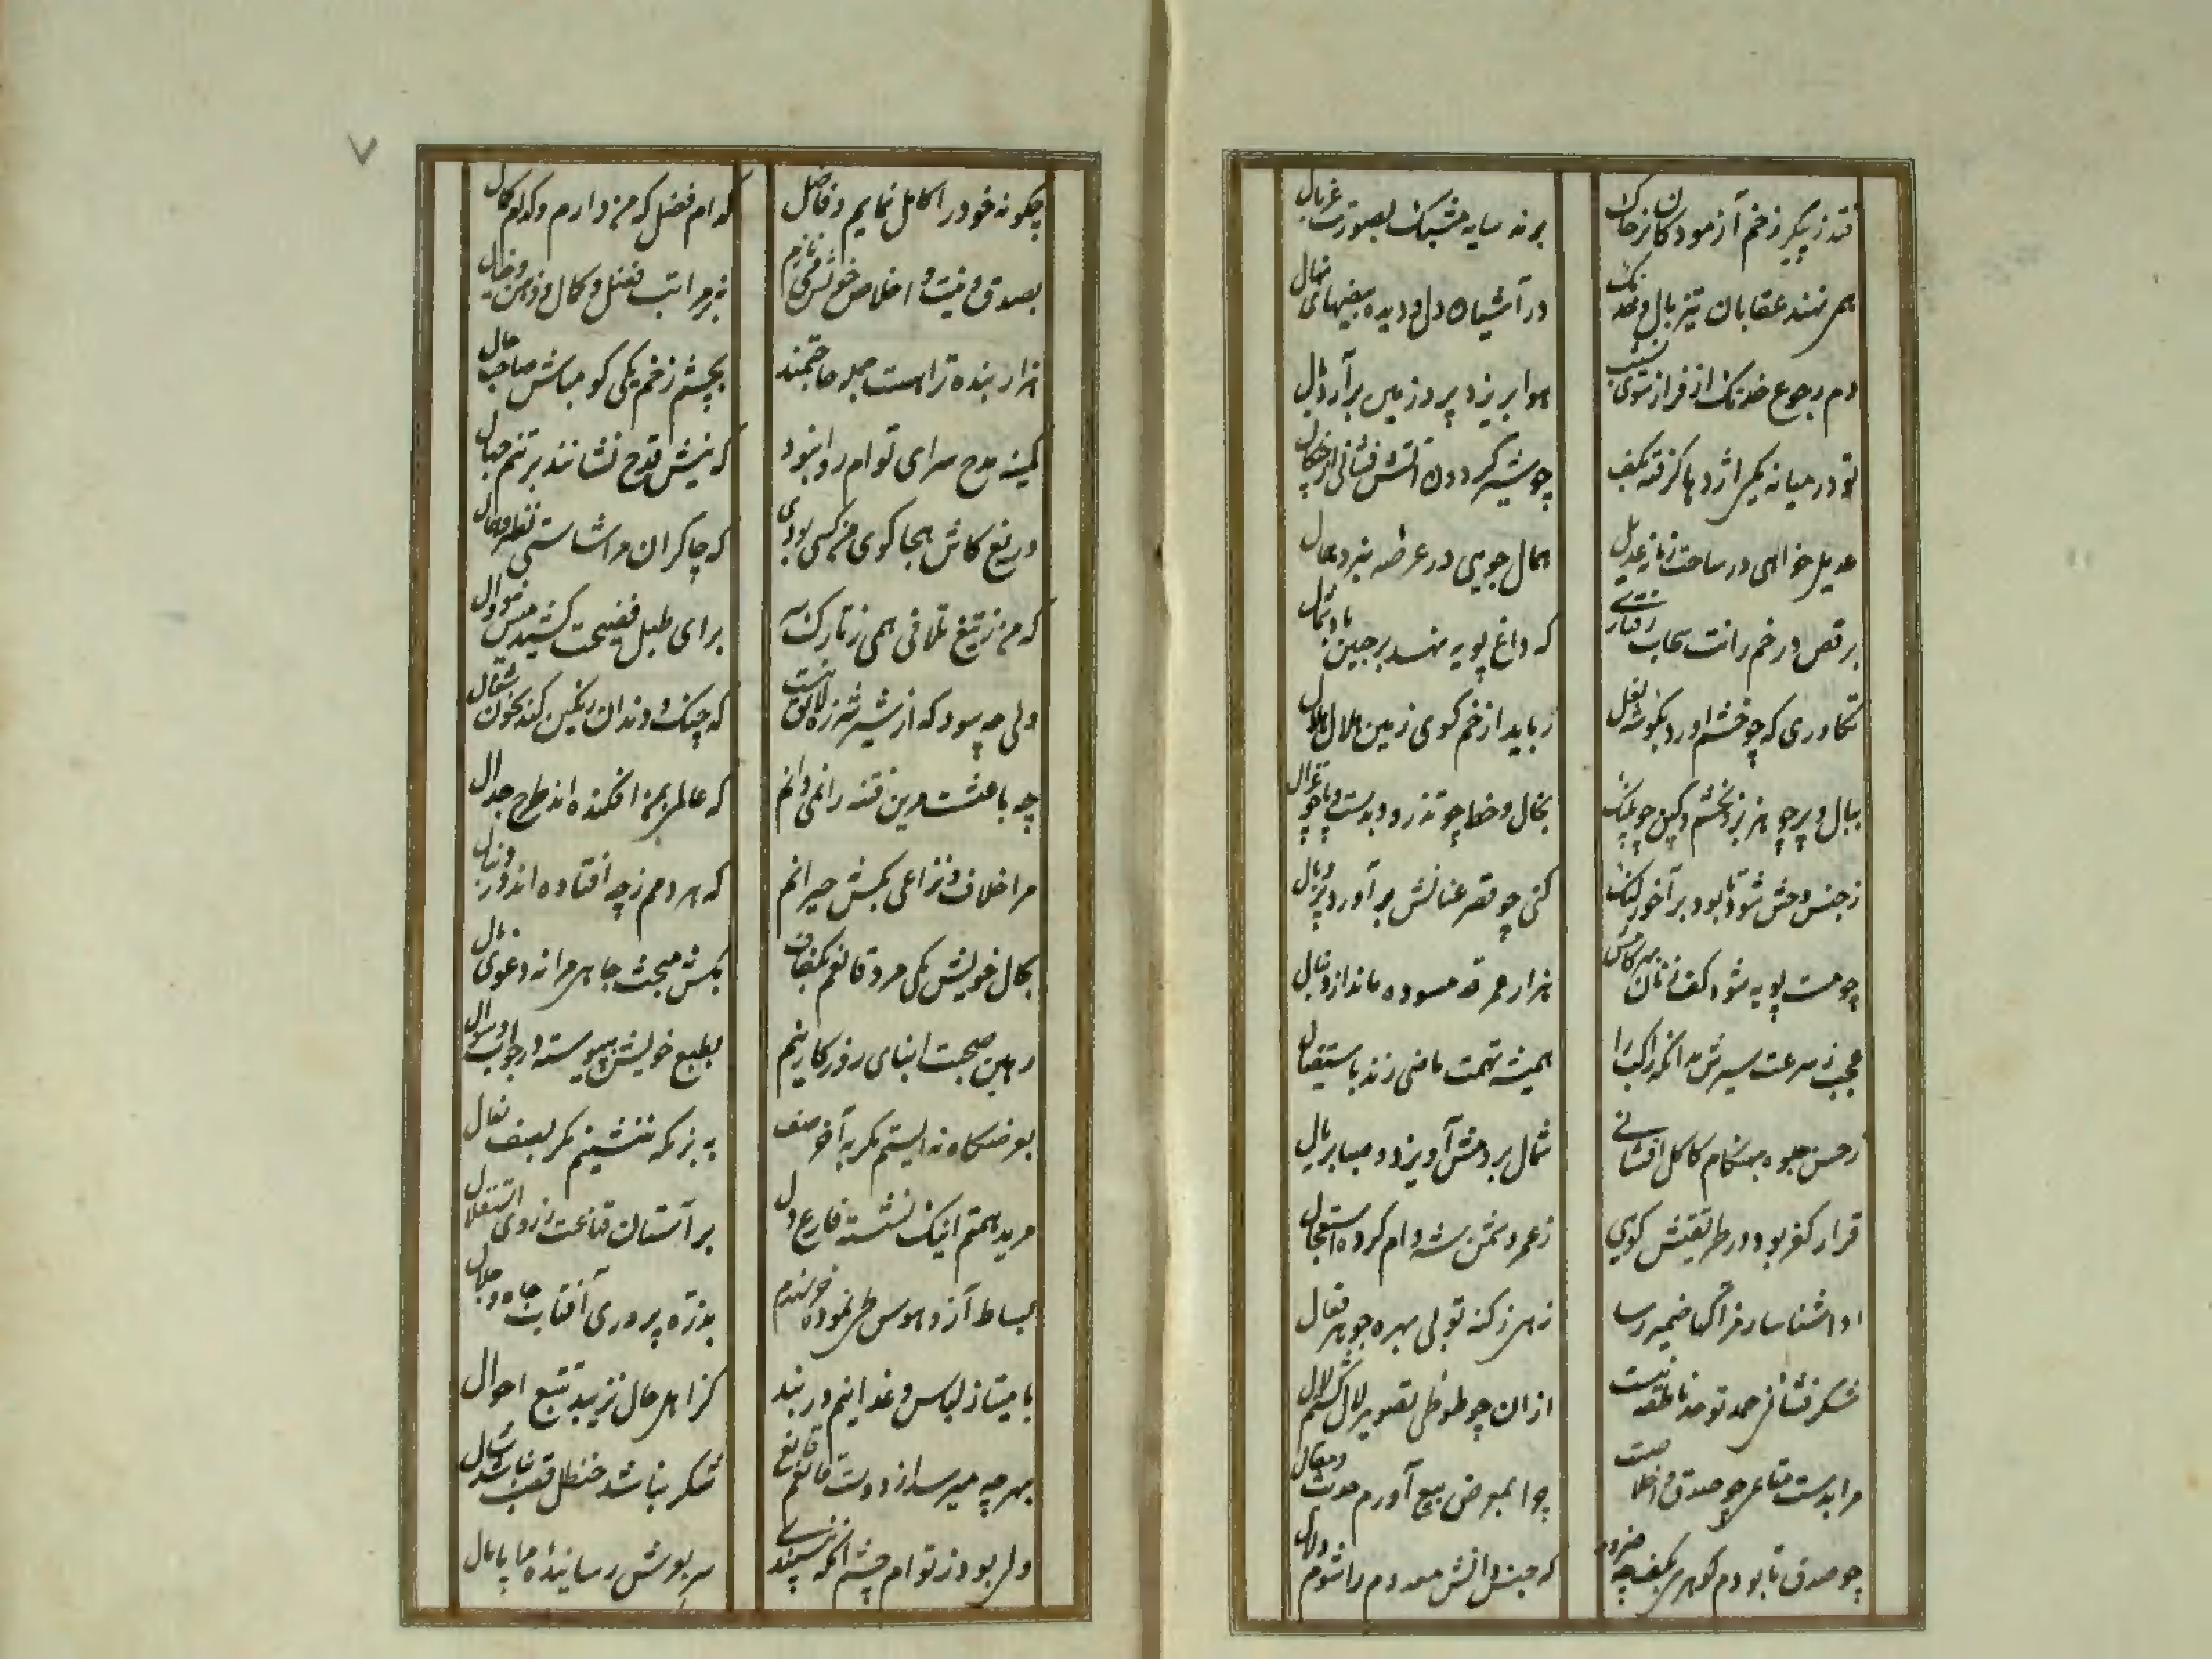 فتد ز پیکر زخم آزمودگان بر خاک
برنه سایه مشبک بصورت غربال
بهم نهند عقابان تیز بال و خدنگ
در آشیان دل و دیده بیضهای نهال
دم رجوع خدنگ از فراز سوی نشیب
هوا بریزد پر و زمین برآرد بال
تو در میانه یکی اژدها گرفته بکف
چو شیر گردون آتش فشانی از چنگال
عدیل خواهی در ساحت زمانه عدیل
همال جویی در عرصه نبرد همال
برقص درخم رانت سحاب رفتاری
که داغ پویه نهد بر جبین باد شمال
تکاوری که چو خشم آورد بگوشه نعل
رباید از خم گوی زمین هلال هلال
ببال و پر چو هزبر و بخشم و کین چو پلنگ
بخال و خط چو تذرو و بدست و پا چو غزال
ز جنس وحش شود تا بود بر آخور لنگ
کنی چو قصر عنانش برآورد پر و بال
چو مست پویه شود کف زنان
هزار مرحله آسوده ماند از دنبال
عجب ز سرعت سیرش مدان که راکب را
همیشه تهمت ماضی زند باستقبال
ز حسن جلوه بهنگام کاکل افشانی
شمال بر دمش آویزد و صبا بر یال
قرار کفر بود در طریقتش گویی
ز عمر دشمن شه وام کرده استعجال
ادا شناسا رمز آگها ضمیر رسا
ز هر ز کنه تو بی بهره جوهر فعال
شکر فشانی حمد تو حد ناطقه نیست
ازان چو طوطی تصویر لال گشتم لال
مرا بدست متاعی چو صدق و اخلاصست
چرا بمعرض بیع آورم حدیث و مقال
چو صدق تا بودم گوهری بکف چه ضرور
که جنس دانش معدوم را شوم دلال
چگونه خود را کامل نمایم و فاضل
کدام فضل که من دارم و کدام کمال
بصدق و نیت و اخلاص خویش می نازم
نه بر مراتب فضل و کمال و ذهن و خیال
هزار بنده تراهست جمله حاجتمند
بچشم زخم یکی گو مباش صاحب حال
کمینه مدح سرای توام روا نبود
که نیش قدح نشانند بر تنم جهال
دریغ کاش هجا گوی من کسی بودی
که چاکران مرا شاستی نظیر و همال
که من ز تیغ تلافی همی ز تارک
برای طبل فضیحت کشیدمش دوال
ولی چه سود که از شیر شرزه لایق نیست
که چنگ و دندان رنگین کند بخون شغال
چه باعثست درین فتنه را نمی دانم
که عالمی بمن افکنده اند طرح جدال
مرا خلاف و نزاعی بکس نه حیرانم
که مردمم ز چه افتاده اند در دنبال
بکال خویش یکی مرد قانعم بکفاف
بکس نه مبحث جاهم مرا نه دعوی مال
رهین صحبت ابنای روزگار نیم
بطبع خویشم پیوسته در جواب و سوال
بعرضگاه نه ایستم مگر بآخر صف
به بزمگه ننشینم مگر بصف نعال
مرید همتم اینک نشسته فارغ دل
بر آستان قناعت ز روی استقلال
بساط آز و هوس طی نموده خرسندم
بذره پروری آفتاب جاه و جلال
بامتیاز لباس و غذا نیم در بند
کز اهل حال نزیبد تتبع احوال
بهر چه میرسد از دولت تو قانع
شکر نباشد حنظل قصب نباشد شال
ولی بود ز توام چشم آنکه نپسندی
سر بعرش رسانیده مرا پامال